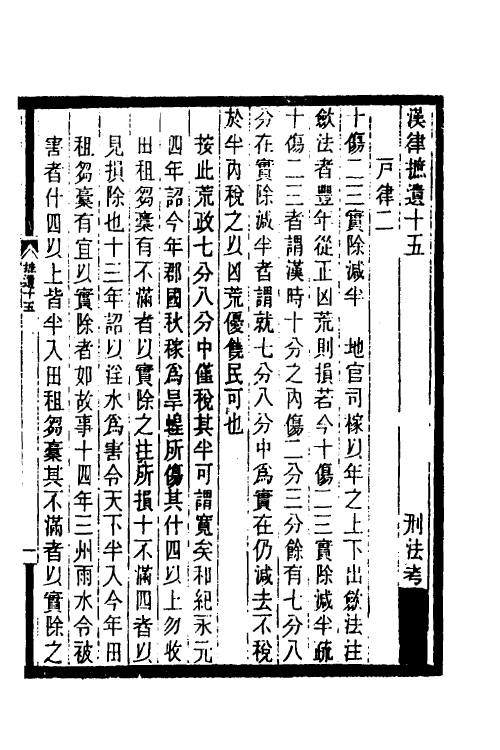 漢律摭遺十五　　　　　　　刑法考
戶律二
十傷二三實除減半　地官司稼以年之上下出斂法注
斂法者豐年從正凶荒則損若今十傷二三實除減半疏
十傷二三者謂漢時十分之內傷二分三分餘有七分八
分在實除減半者謂就七分八分中為實在仍減去不稅
於半內稅之以凶荒優饒民可也
按此荒政七分八分中僅稅其半可謂寬矣和紀永元
四年詔今年郡國秋稼為旱蝗所傷其什四以上勿收
田租芻稾有不滿者以實除之注所損十不滿四者以
見損除也十三年詔以淫水為害令天下半入今年田
租芻稾有宜以實除者如故事十四年三州雨水令被
害者什四以上皆半入田租芻稾其不滿者以實除之
摭遺十五
一